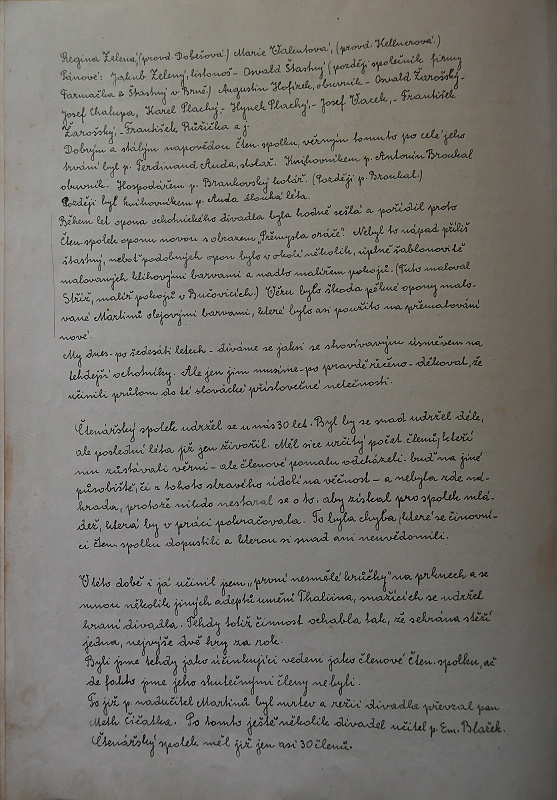 Regina Zelená, (provd. Dobešová.) Marie Valentová, (provd. Kellnerová.)
Pánové: Jakub Zelený, listonoš - Osvald Šťastný (později společník firmy
Farmačka & Šťastný v Brně) Augustin Hofírek, obuvník - Osvald Žarošský -
Josef Chalupa, Karel Plachý, - Hynek Plachý, - Josef Vacek, - František
Žarošský, - František Růžička a j.
Dobrým a stálým napovědou čten. spolku, věrným tomuto po celé jeho
trvání byl p. Ferdinand Auda, stolař. Knihovníkem p. Antonín Broukal
obuvník. Hospodářem p. Brankovský kolář. (Později p. Broukal.)
Později byl knihovníkem p. Auda dlouhá léta.
Během let opona ochotnického divadla byla hodně sešlá a pořídil proto
čten. spolek oponu novou s obrazem „Přemysla oráče". Nebyl to nápad příliš
šťastný, neboť podobných opon bylo v okolí několik, úplně šablonovitě
malovaných klihovými barvami a nadto malířem pokojů. (Tuto maloval
Stříž, malíř pokojů v Bučovicích.) Věru bylo škoda pěkné opony malo-
vané Martinů olejovými barvami, které bylo asi použito na přemalování
nové.
My dnes - po šedesáti letech - díváme se jaksi se shovívavým úsměvem na
tehdejší ochotníky. Ale jen jim musíme - po pravdě řečeno - děkovat, že
učinili průlom do té slovácké příslovečné netečnosti.
Čtenářský spolek udržel se u nás 30 let. Byl by se snad udržel déle,
ale poslední léta již jen živořil. Měl sice určitý počet členů, kteří
mu zůstávali věrni - ale členové pomalu odcházeli - buď na jiné
působiště, či z tohoto slzavého údolí na věčnost - a nebyla zde ná-
hrada, protože nikdo nestaral se o to, aby získal pro spolek mlá-
dež, která by v práci pokračovala. To byla chyba, které se činovní-
ci čten. spolku dopustili a kterou si snad ani neuvědomili.
V této době i já učinil jsem „první nesmělé krůčky" na prknech a se
mnou několik jiných adeptů umění Thaliina, snažících se udržet
hraní divadla. Tehdy totiž činnost ochabla tak, že sehrána stěží
jedna, nejvýše dvě hry za rok.
Byli jsme tehdy jako účinkující vedeni jako členové čten. spolku, ač
de fakto jsme jeho skutečnými členy nebyli.
To již p. nadučitel Martinů byl mrtev a režii divadla převzal pan
Meth. Čičatka. Po tomto ještě několik divadel učitel p. Em. Blažek.
Čtenářský spolek měl již jen asi 30 členů.